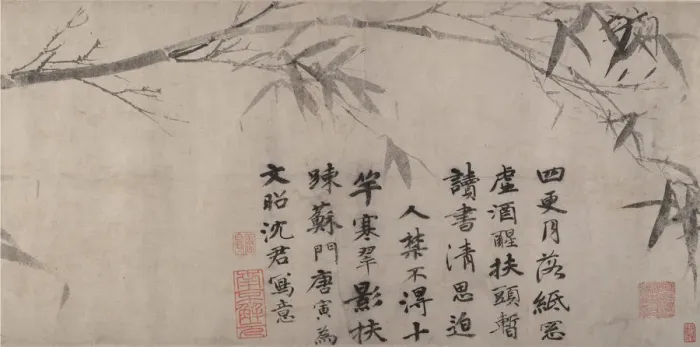 四更月落紙窓
虛酒醒扶頭暫
讀書清思迫
人禁不得十
竿寒翠影扶
踈蘇門唐寅為
文昭沈君寫意
南京解元